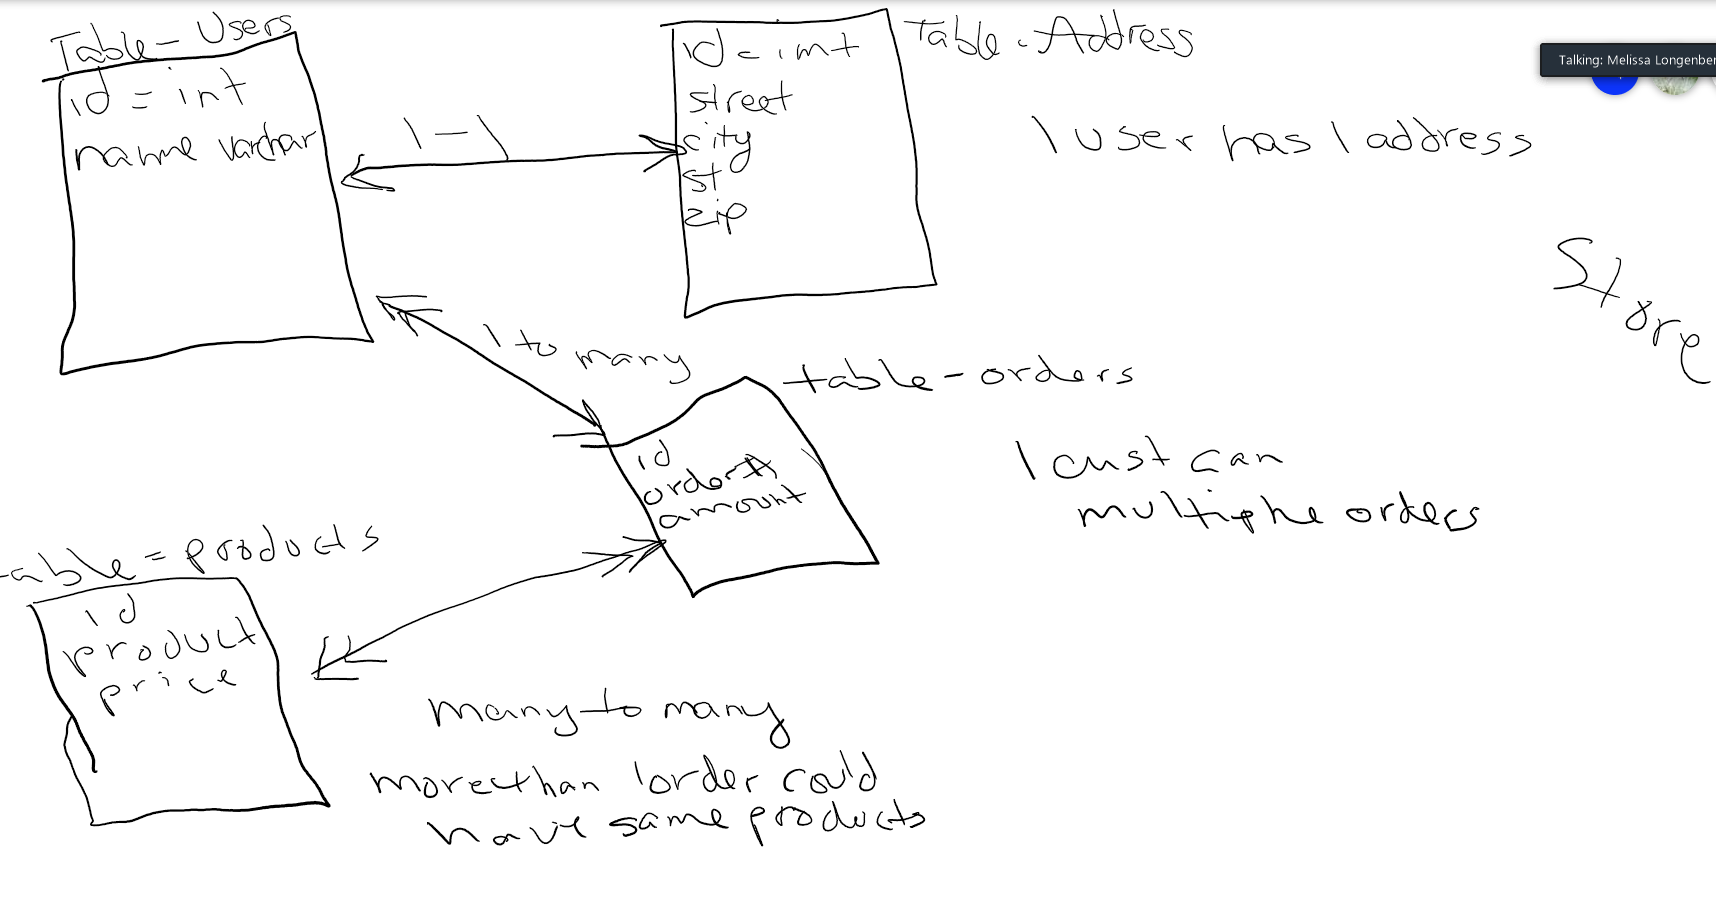 Table - Users
id = int
name varchar
1-1
id = int
street
city
st
zip
Table - Address
Talking: Melissa Longenber
1 user has 1 address
Store
1 to many
table - orders
id
order#
amount
1 cust can
multiple orders
table = products
id
product
price
many to many
more than 1 order could
have same products